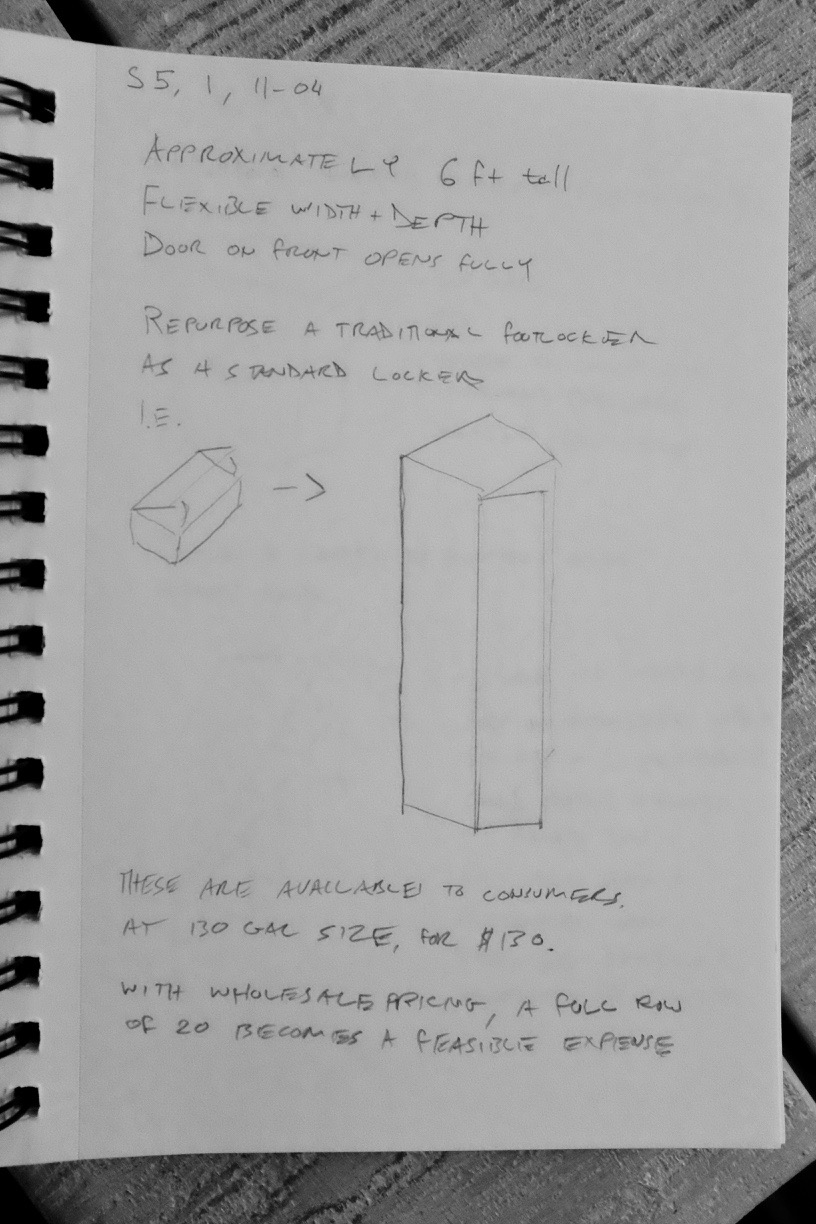 S5, 1, 11-04
APPROXIMATELY 6 ft tall
FLEXIBLE WIDTH + DEPTH
DOOR ON FRONT OPENS FULLY
REPURPOSE A TRADITIONAL FOOTLOCKER
AS A STANDARD LOCKER
I.E.
->
THESE ARE AVAILABLE TO CONSUMERS.
AT 130 GAL SIZE, FOR $130.
WITH WHOLESALE PRICING, A FULL ROW
OF 20 BECOMES A FEASIBLE EXPENSE